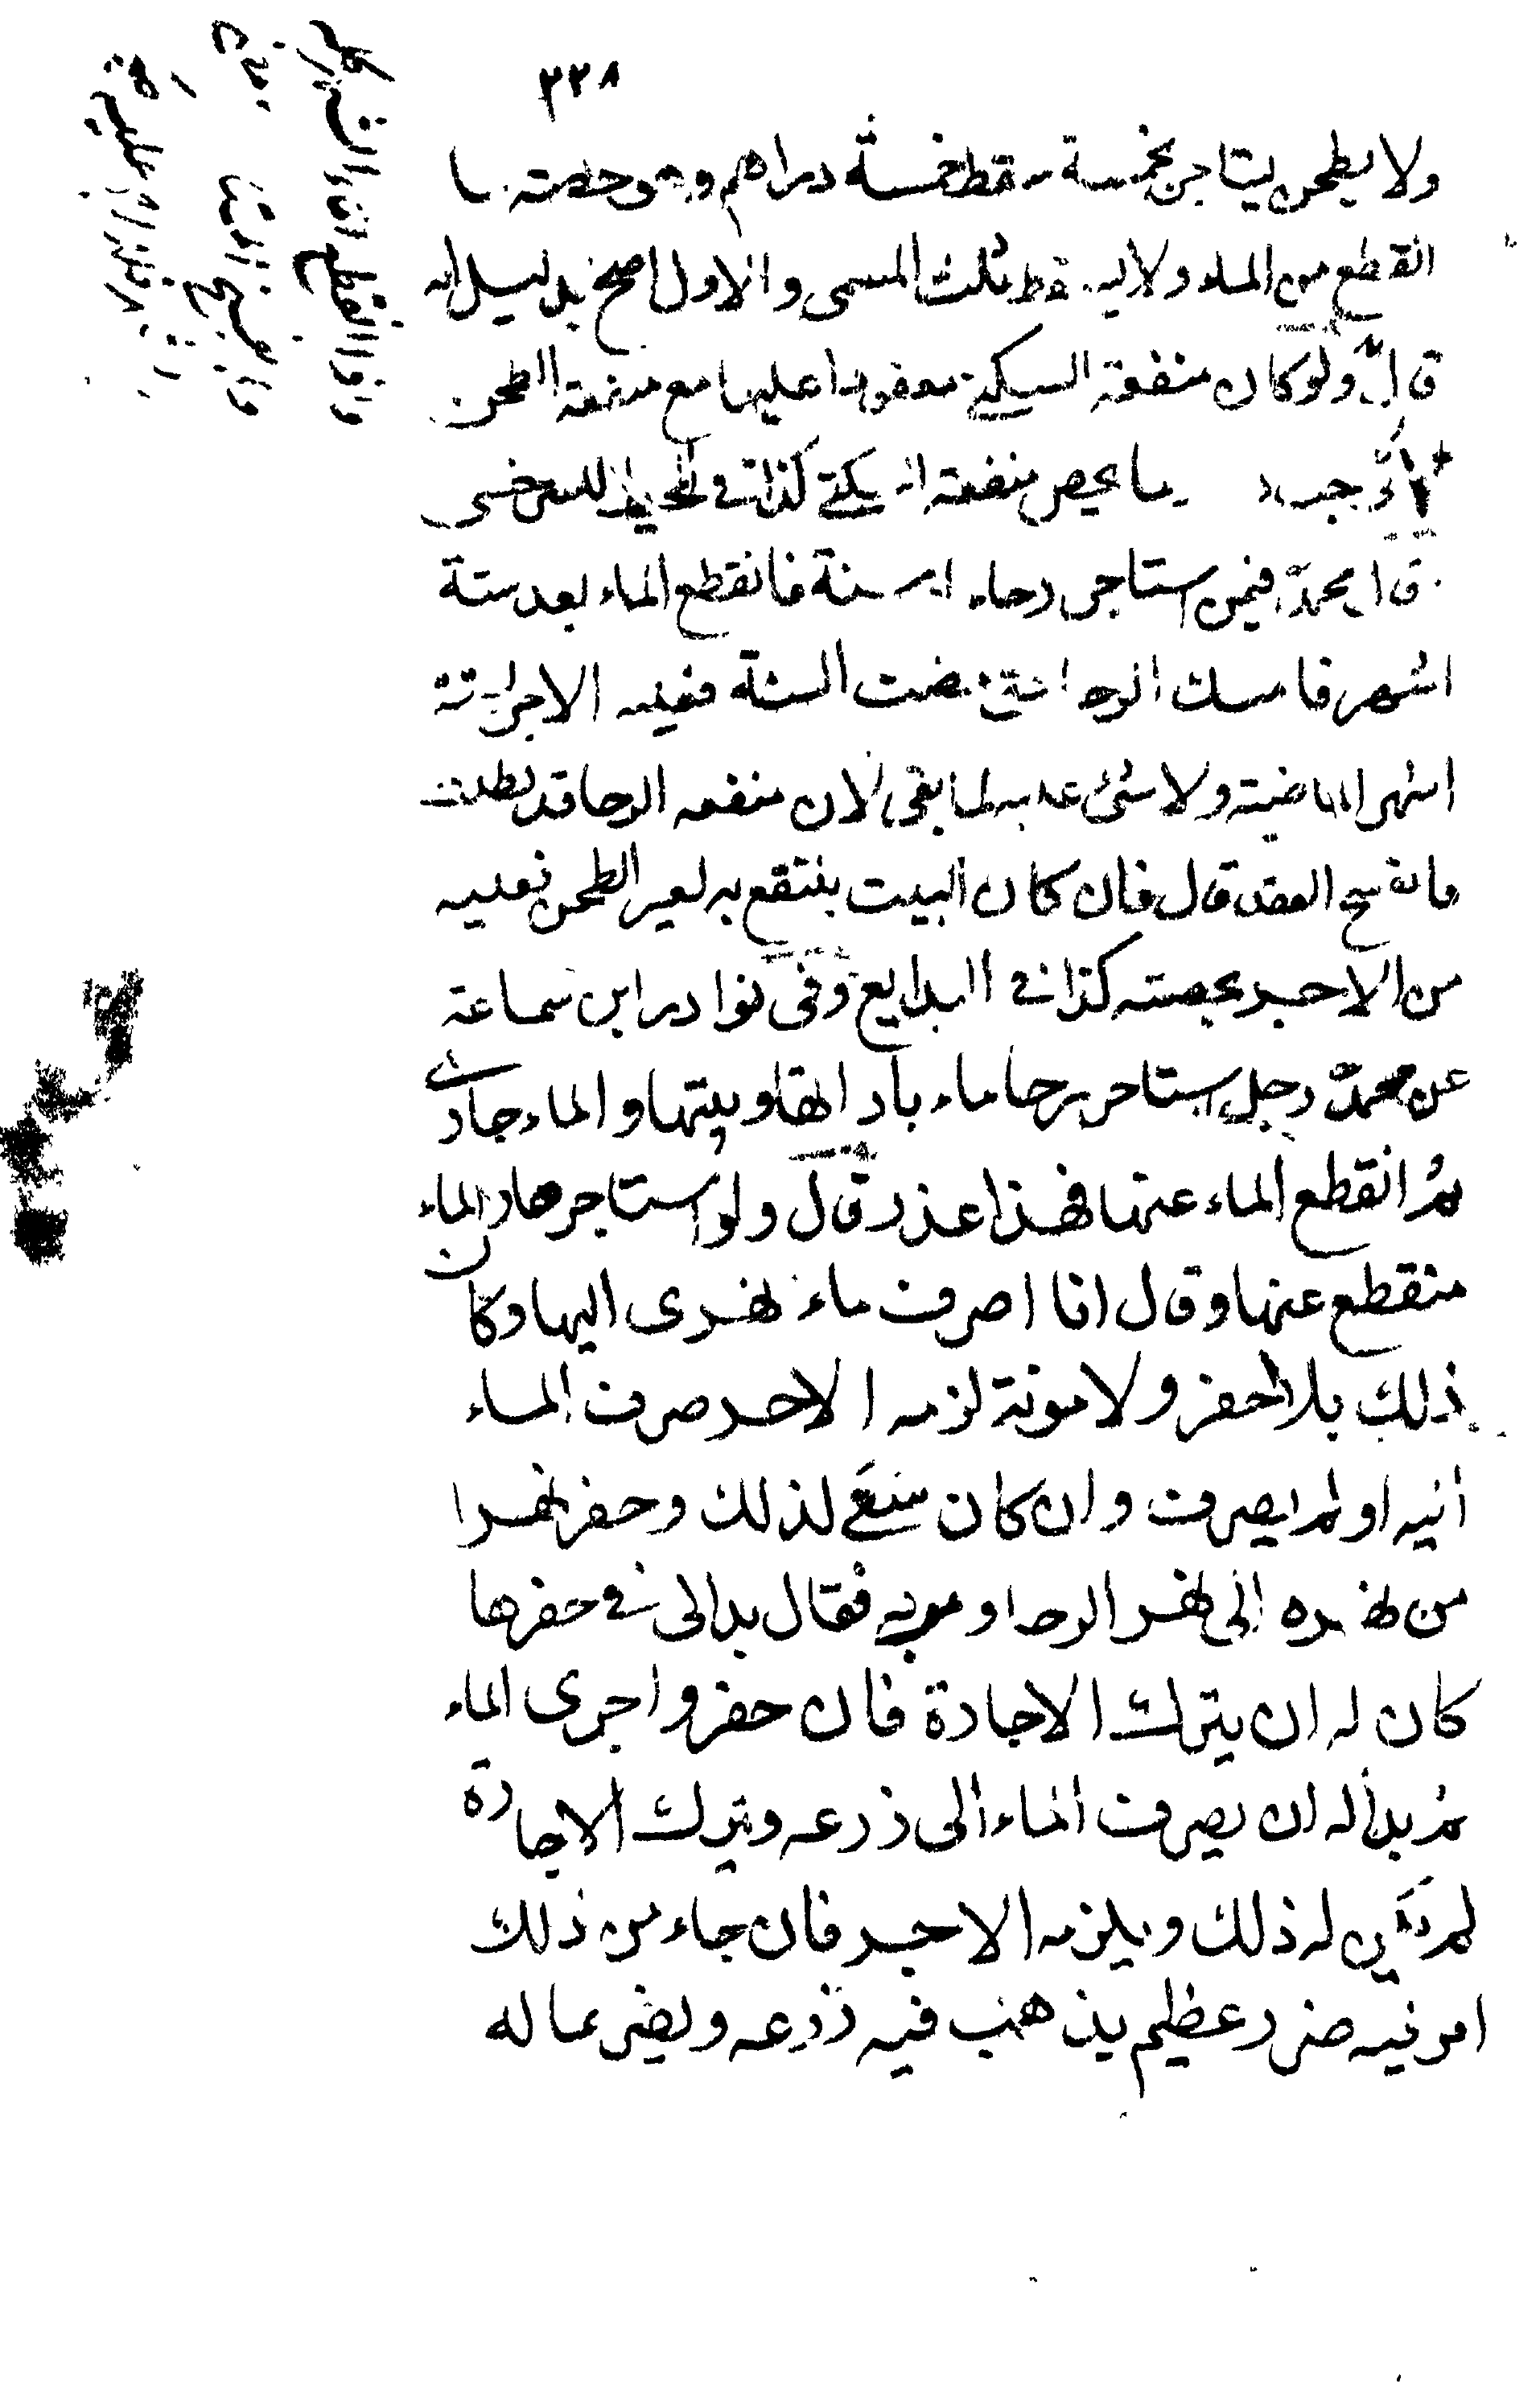 ٣٣٨
ولا يطحن يستاجر بخمسة سقط خمسة دراهم وهو حصته ما
انقطع من الماء ولا يسقط ثلث المسمى والاول اصح بدليل انه
قال ولو كان منفعة السكنى معقودا عليها مع منفعة الطحن
وجب ما يخص منفعة السكنى كذا في المحيط للسرخسى
قال محمد فيمن استاجر رحاء سنة فانقطع الماء بعد ستة
اشهر فامسك الرحا حتى مضت السنة فعليه الاجر ستة
اشهر الماضية ولا شئ عليه لما بقى لان منفعه الرحا قد بطلت
فانفسخ العقد قال فان كان البيت ينتفع به لغير الطحن فعليه
من الاجر بحصته كذا في البدايع وفى نوادر ابن سماعة
عن محمد رجل استاجر رحا ماء باداتها وبيتها والماء جارى
ثم انقطع الماء عنها فهذا عذر قال ولو استاجرها والماء
منقطع عنها وقال انا اصرف ماء نهرى اليها وكان
ذلك بلا حفر ولا مونة لزمه الاجر صرف الماء
اليه او لم يصرف وان كان لذلك وحفر نهرا
من نهره الى نهر الرحا فقال بدالى في حفرها
كان له ان يترك الاجارة فان حفر واجرى الماء
ثم بدأله ان يصرف الماء الى زرعه ويترك الاجارة
لم يكن له ذلك ويلزمه الاجر فان جاء من ذلك
امر فيه ضرر عظيم يذهب فيه زرعه ويضر بماله